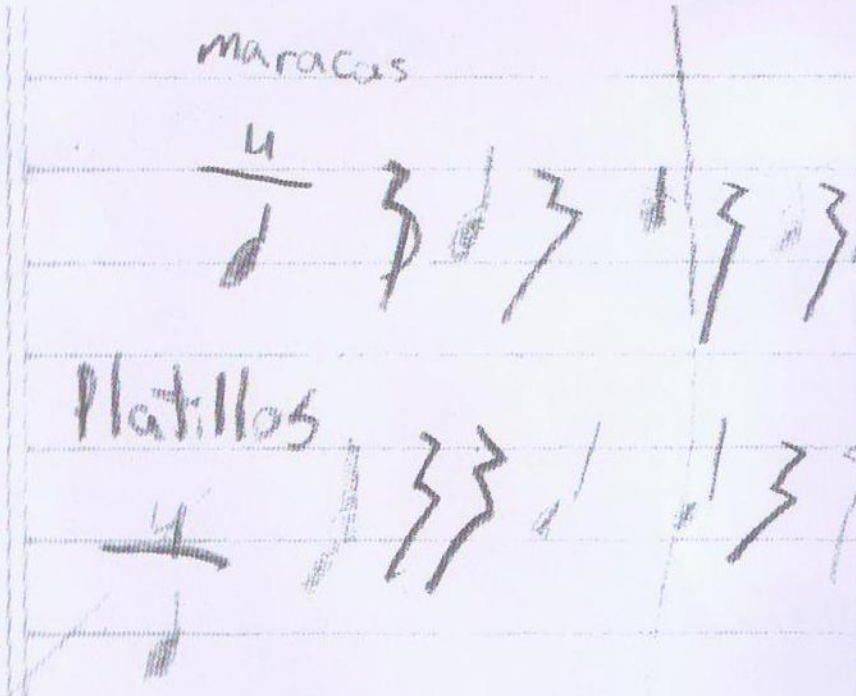 Maracas
4
Platillos
4